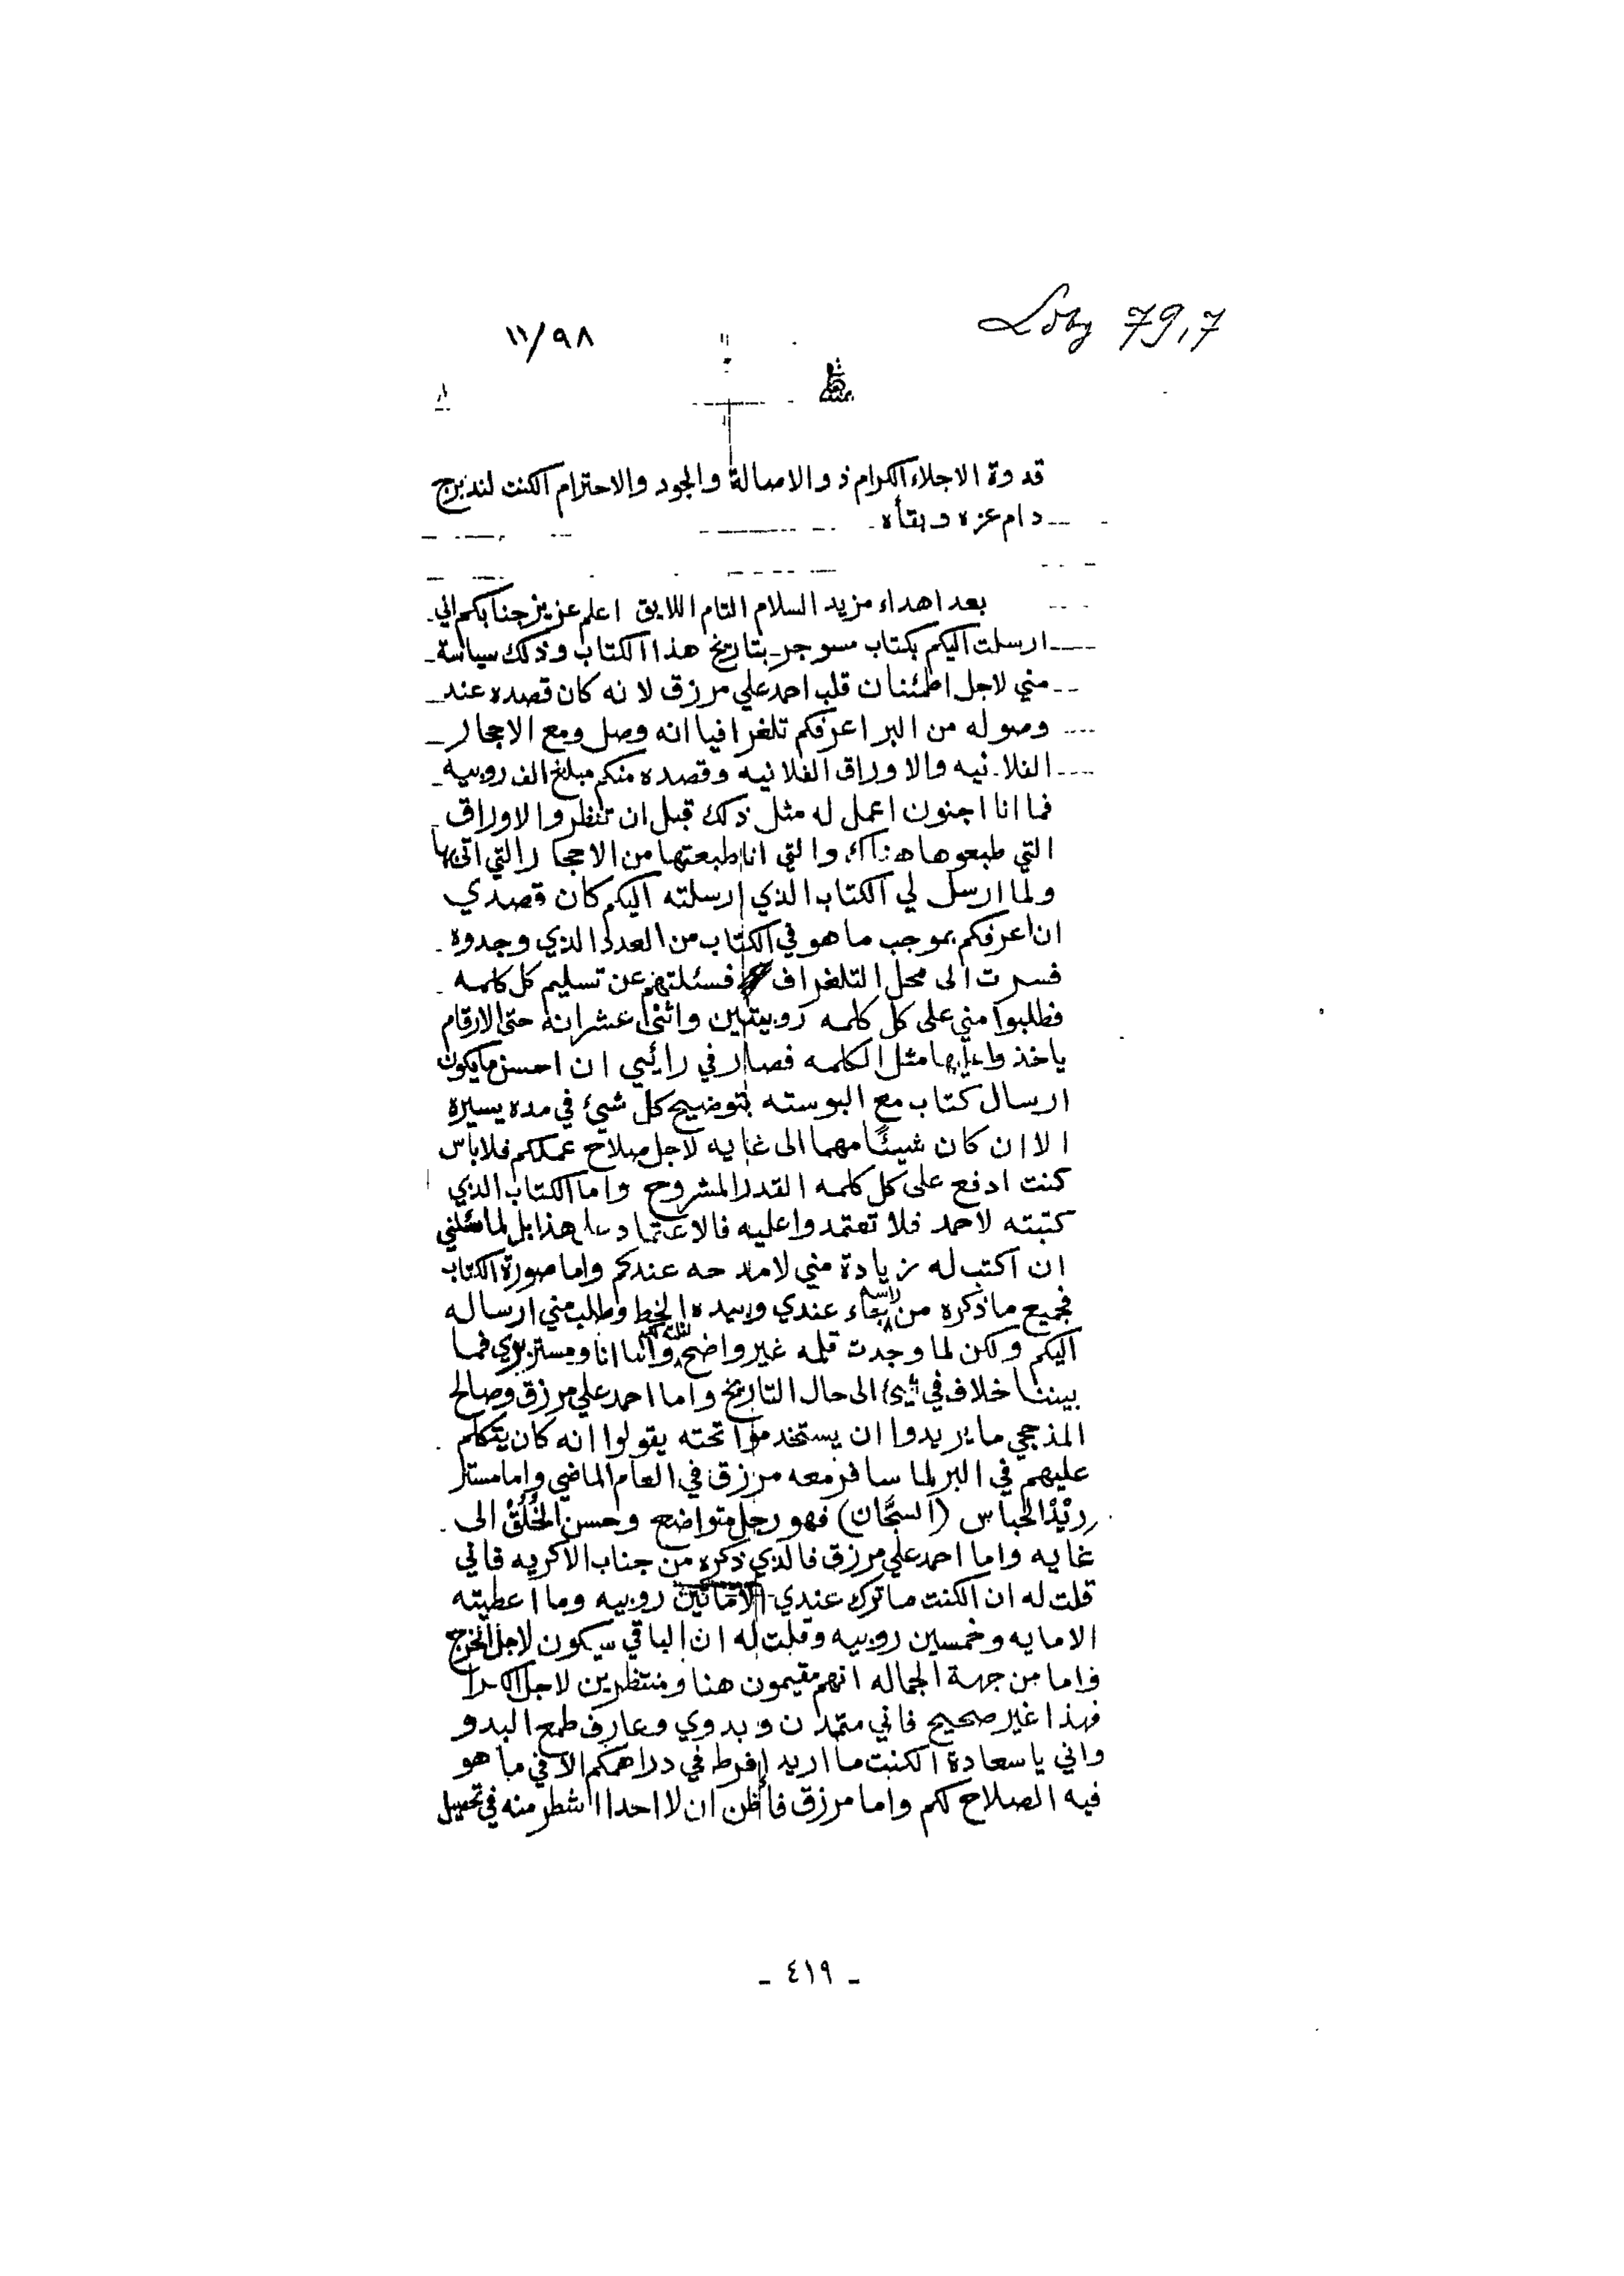 Loby 79,7
١١/٩٨
قدوة الاجلاء الكرام ذو الاصالة والجود والاحترام الكنت لندبرج
دام عزه وبقأه
بعد اهداء مزيد السلام التام اللايق اعلم عزيز جنابكم اني
ارسلت اليكم بكتاب مسوجر بتاريخ هذا الكتاب وذلك سياسة
مني لاجل اطمئنان قلب احمد علي مرزق لانه كان قصده عند
وصوله من البر اعرفكم تلغرافيا انه وصل ومع الاحجار
الفلانيه والاوراق الفلانيه وقصده منكم مبلغ الف روبيه
فما انا اجنون اعمل له مثل ذلك قبل ان تنظروا الاوراق
التي طبعوها هناك والتي انا طبعتها من الاحجار التي اتى بها
ولما ارسل لي الكتاب الذي ارسلته اليكم كان قصدي
ان اعرفكم بموجب ما هو في الكتاب من العدد الذي وجدوه
فسرت الى محل التلغراف فسئلتهم عن تسليم كل كلمه
فطلبوا مني على كل كلمه روبيتين واثنى عشر انه حتى الارقام
ياخذوا عليها مثل الكلمه فصار في رائيي ان احسن ما يكون
ارسال كتاب مع البوسته بتوضيح كل شيئ في مده يسيره
الا ان كان شيئًا مهما الى غايه لاجل صلاح عملكم فلا باس
كنت ادفع على كل كلمه القدر المشروح واما الكتاب الذي
كتبته لاحمد فلا تعتمدوا عليه فالاعتماد على هذا بل لما سئلني
ان اكتب له زيادة مني لامدحه عندكم واما صورة الكتاب
فجميع ما ذكره من راسه جاء عندي وبيده الخط وطلب مني ارساله
اليكم ولكن لما وجدت قلمه غير واضح واما انا ومستر بري فما
بيننا خلاف في شيئ الى حال التاريخ واما احمد علي مرزق وصالح
المذحجي ما يريدوا ان يستخدموا تحته يقولوا انه كان يتكلم
عليهم في البر لما سافر معه مرزق في العام الماضي واما مستر
ريْدْ الحباس (السجَّان) فهو رجل متواضع وحسن الخُلُقْ الى
غايه واما احمد علي مرزق فالذي ذكره من جناب الاكريه فاني
قلت له ان الكنت ما ترك عندي الا ماتين روبيه وما اعطيته
الا مايه وخمسين روبيه وقلت له ان الباقي سيكون لاجل الخرج
واما من جهة الجماله انهم مقيمون هنا ومنتظرين لاجل الكرا
فهذا غير صحيح فاني متمدن وبدوي وعارف طمع البدو
واني يا سعادة الكنت ما اريد افرط في دراهمكم الا في ما هو
فيه الصلاح لكم واما مرزق فاظن ان لا احدا اشطر منه في تحصيل
- ٤١٩ -